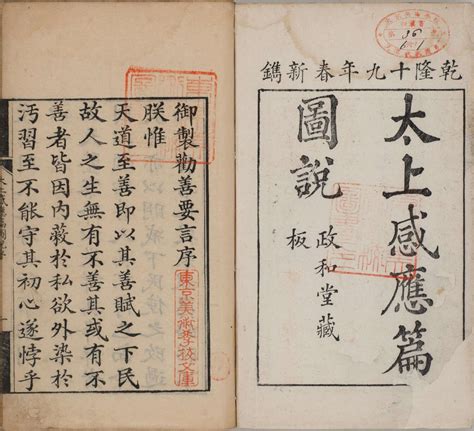 乾隆十九年春新鐫
太上感應篇
圖說
政和堂藏
板
御製勸善要言序
朕惟
天道至善即以其善賦之下民
故人之生無有不善其或有不
善者皆因内蔽於私欲外染於
汚習至不能守其初心遂悖乎
東京美術學校文庫